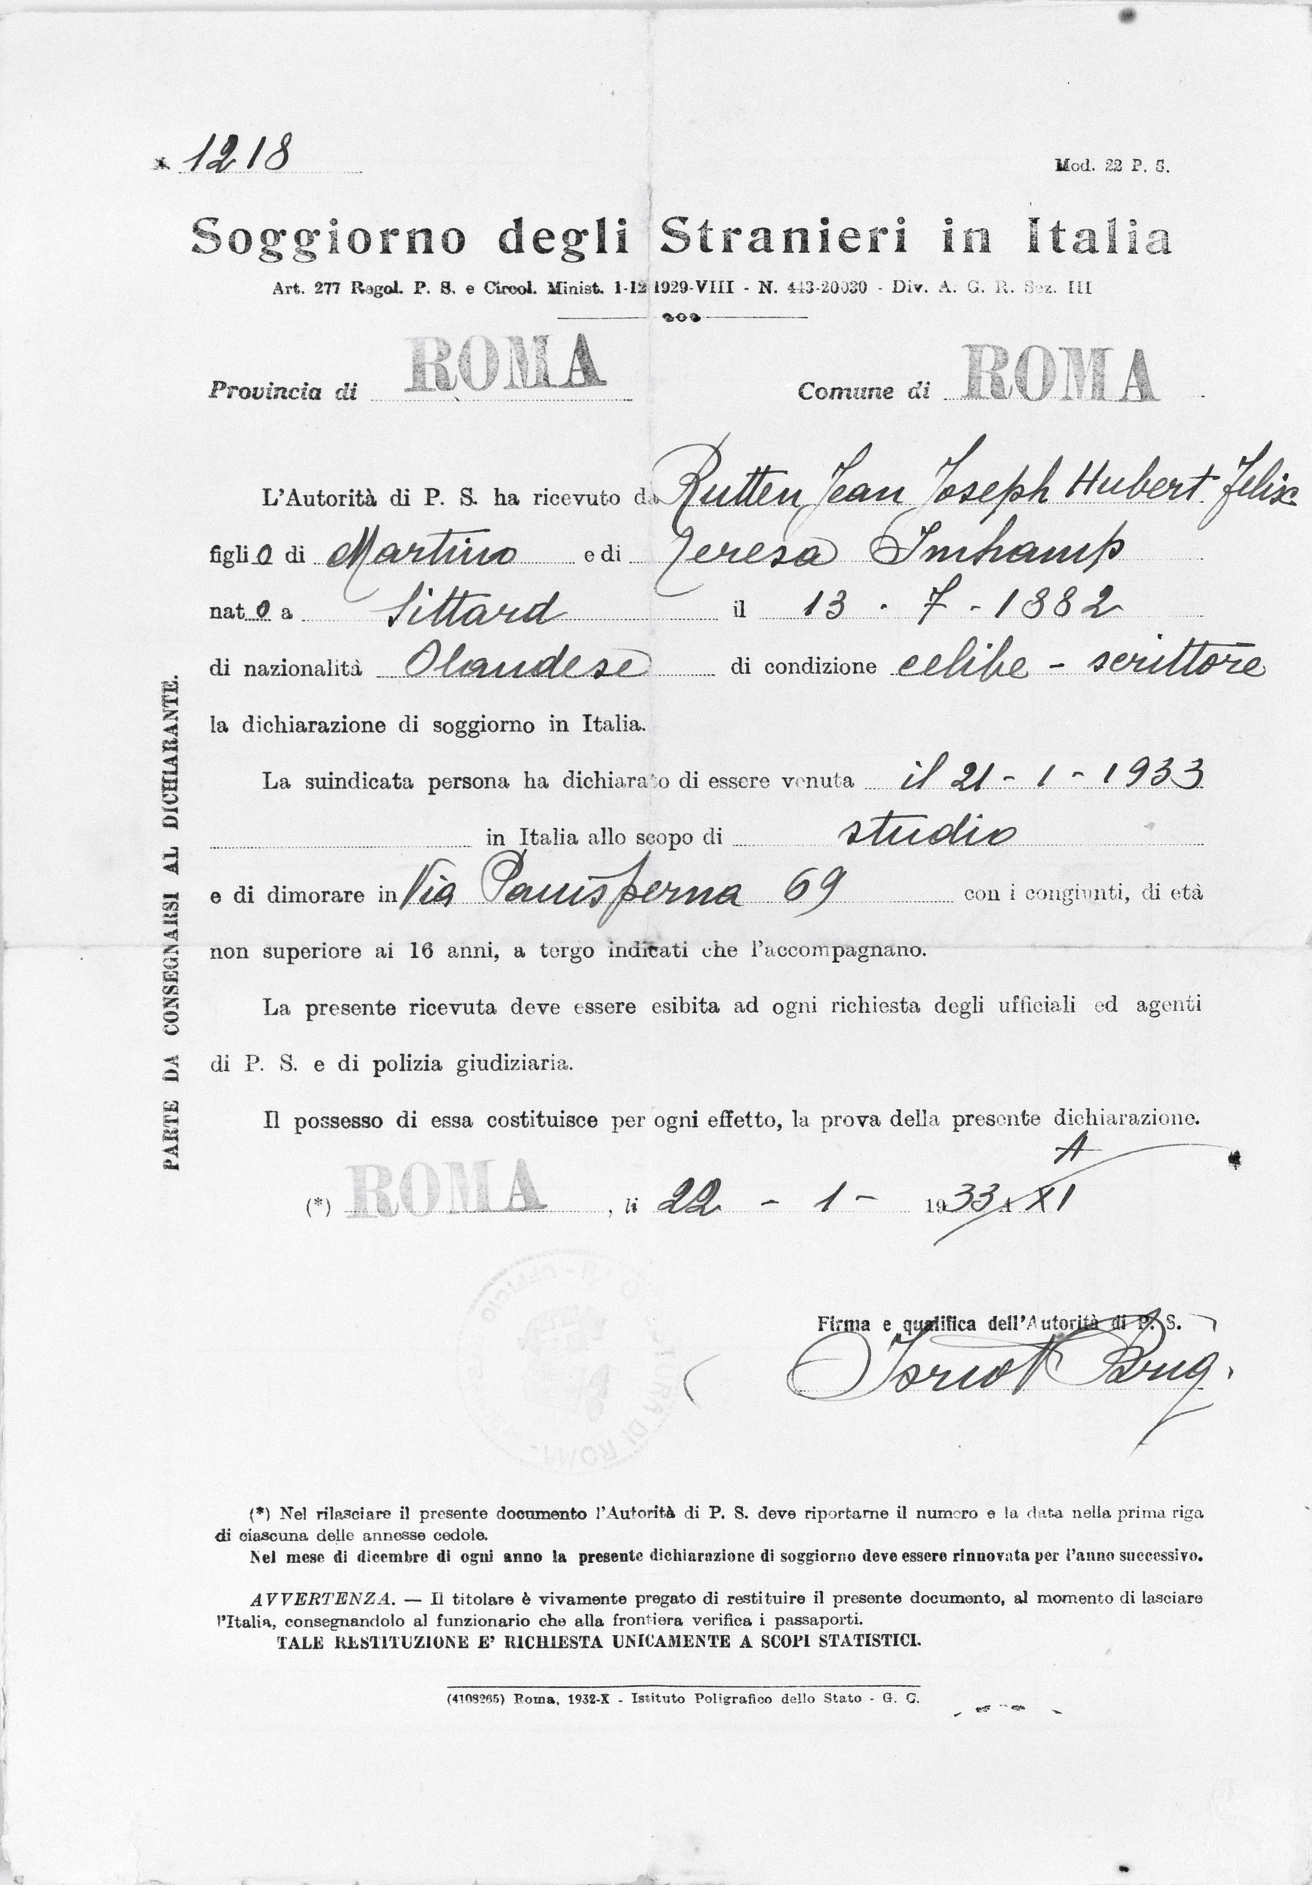 1218
Mod. 22 P. S.
Soggiorno degli Stranieri in Italia
Art. 277 Regol. P. S. e Circol. Minist. 1-12 1929-VIII - N. 443-20030 - Div. A. G. R. Sez. III
Provincia di ROMA Comune di ROMA
L'Autorità di P. S. ha ricevuto da Rutten Jean Joseph Hubert Felix
figlio di Martino e di Teresa Imhamp
nato a Sittard il 13 . 7 - 1882
di nazionalità Olandese di condizione celibe - scrittore
la dichiarazione di soggiorno in Italia.
La suindicata persona ha dichiarato di essere venuta il 21 - 1 - 1933
in Italia allo scopo di studio
e di dimorare in Via Panisperna 69 con i congiunti, di età
non superiore ai 16 anni, a tergo indicati che l'accompagnano.
La presente ricevuta deve essere esibita ad ogni richiesta degli ufficiali ed agenti
di P. S. e di polizia giudiziaria.
Il possesso di essa costituisce per ogni effetto, la prova della presente dichiarazione.
(*) ROMA, li 22 - 1 - 1933 A XI
Firma e qualifica dell'Autorità di P. S.
(*) Nel rilasciare il presente documento l'Autorità di P. S. deve riportarne il numero e la data nella prima riga
di ciascuna delle annesse cedole.
Nel mese di dicembre di ogni anno la presente dichiarazione di soggiorno deve essere rinnovata per l'anno successivo.
AVVERTENZA. — Il titolare è vivamente pregato di restituire il presente documento, al momento di lasciare
l'Italia, consegnandolo al funzionario che alla frontiera verifica i passaporti.
TALE RESTITUZIONE E' RICHIESTA UNICAMENTE A SCOPI STATISTICI.
(4108265) Roma, 1932-X - Istituto Poligrafico dello Stato - G. C.
PARTE DA CONSEGNARSI AL DICHIARANTE.